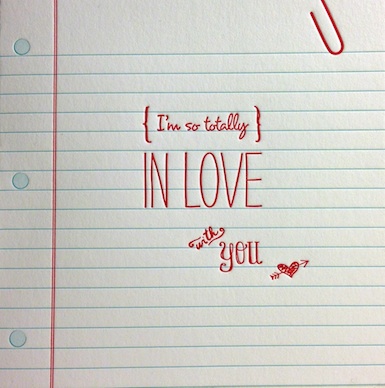 { I'm so totally }
IN LOVE
with
you